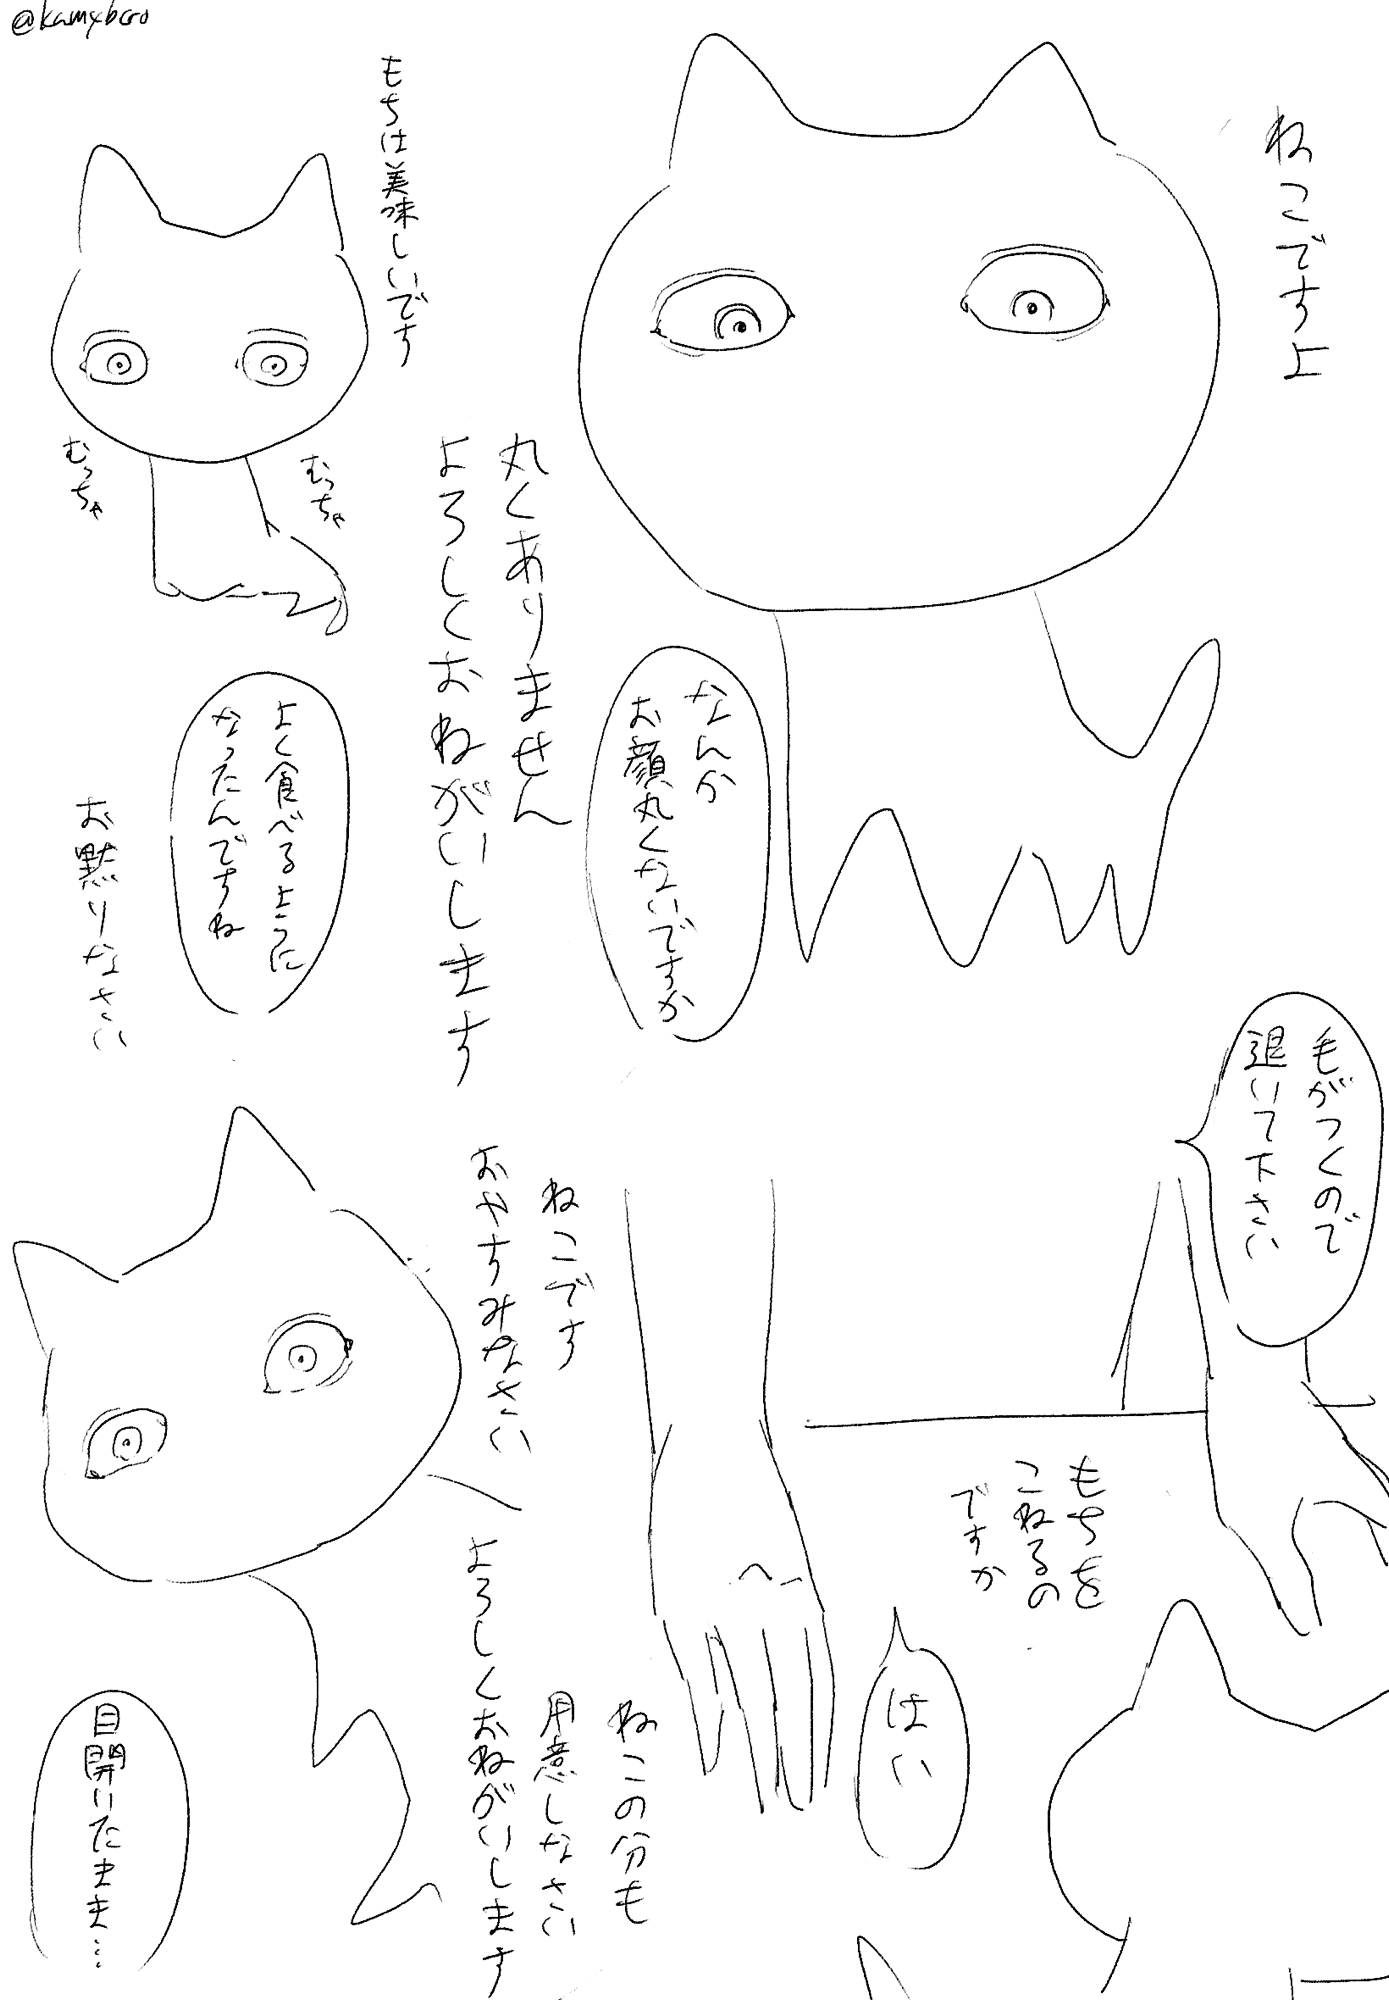 @kamybcro
ねこですよ
なんか
お顔丸くないですか
丸くありません
よろしくおねがいします
もちは美味しいです
むっちゃ
むっちゃ
よく食べるように
なったんですね
お黙りなさい
毛がつくので
退いて下さい
もちを
こねるの
ですか
はい
ねこの分も
用意しなさい
よろしくおねがいします
ねこです
おやすみなさい
目開いたまま…